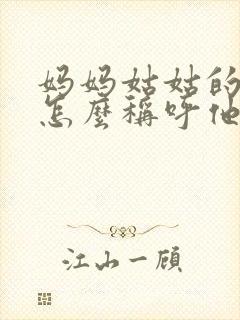 妈妈姑姑的
怎麼稱呼他
江山一顾